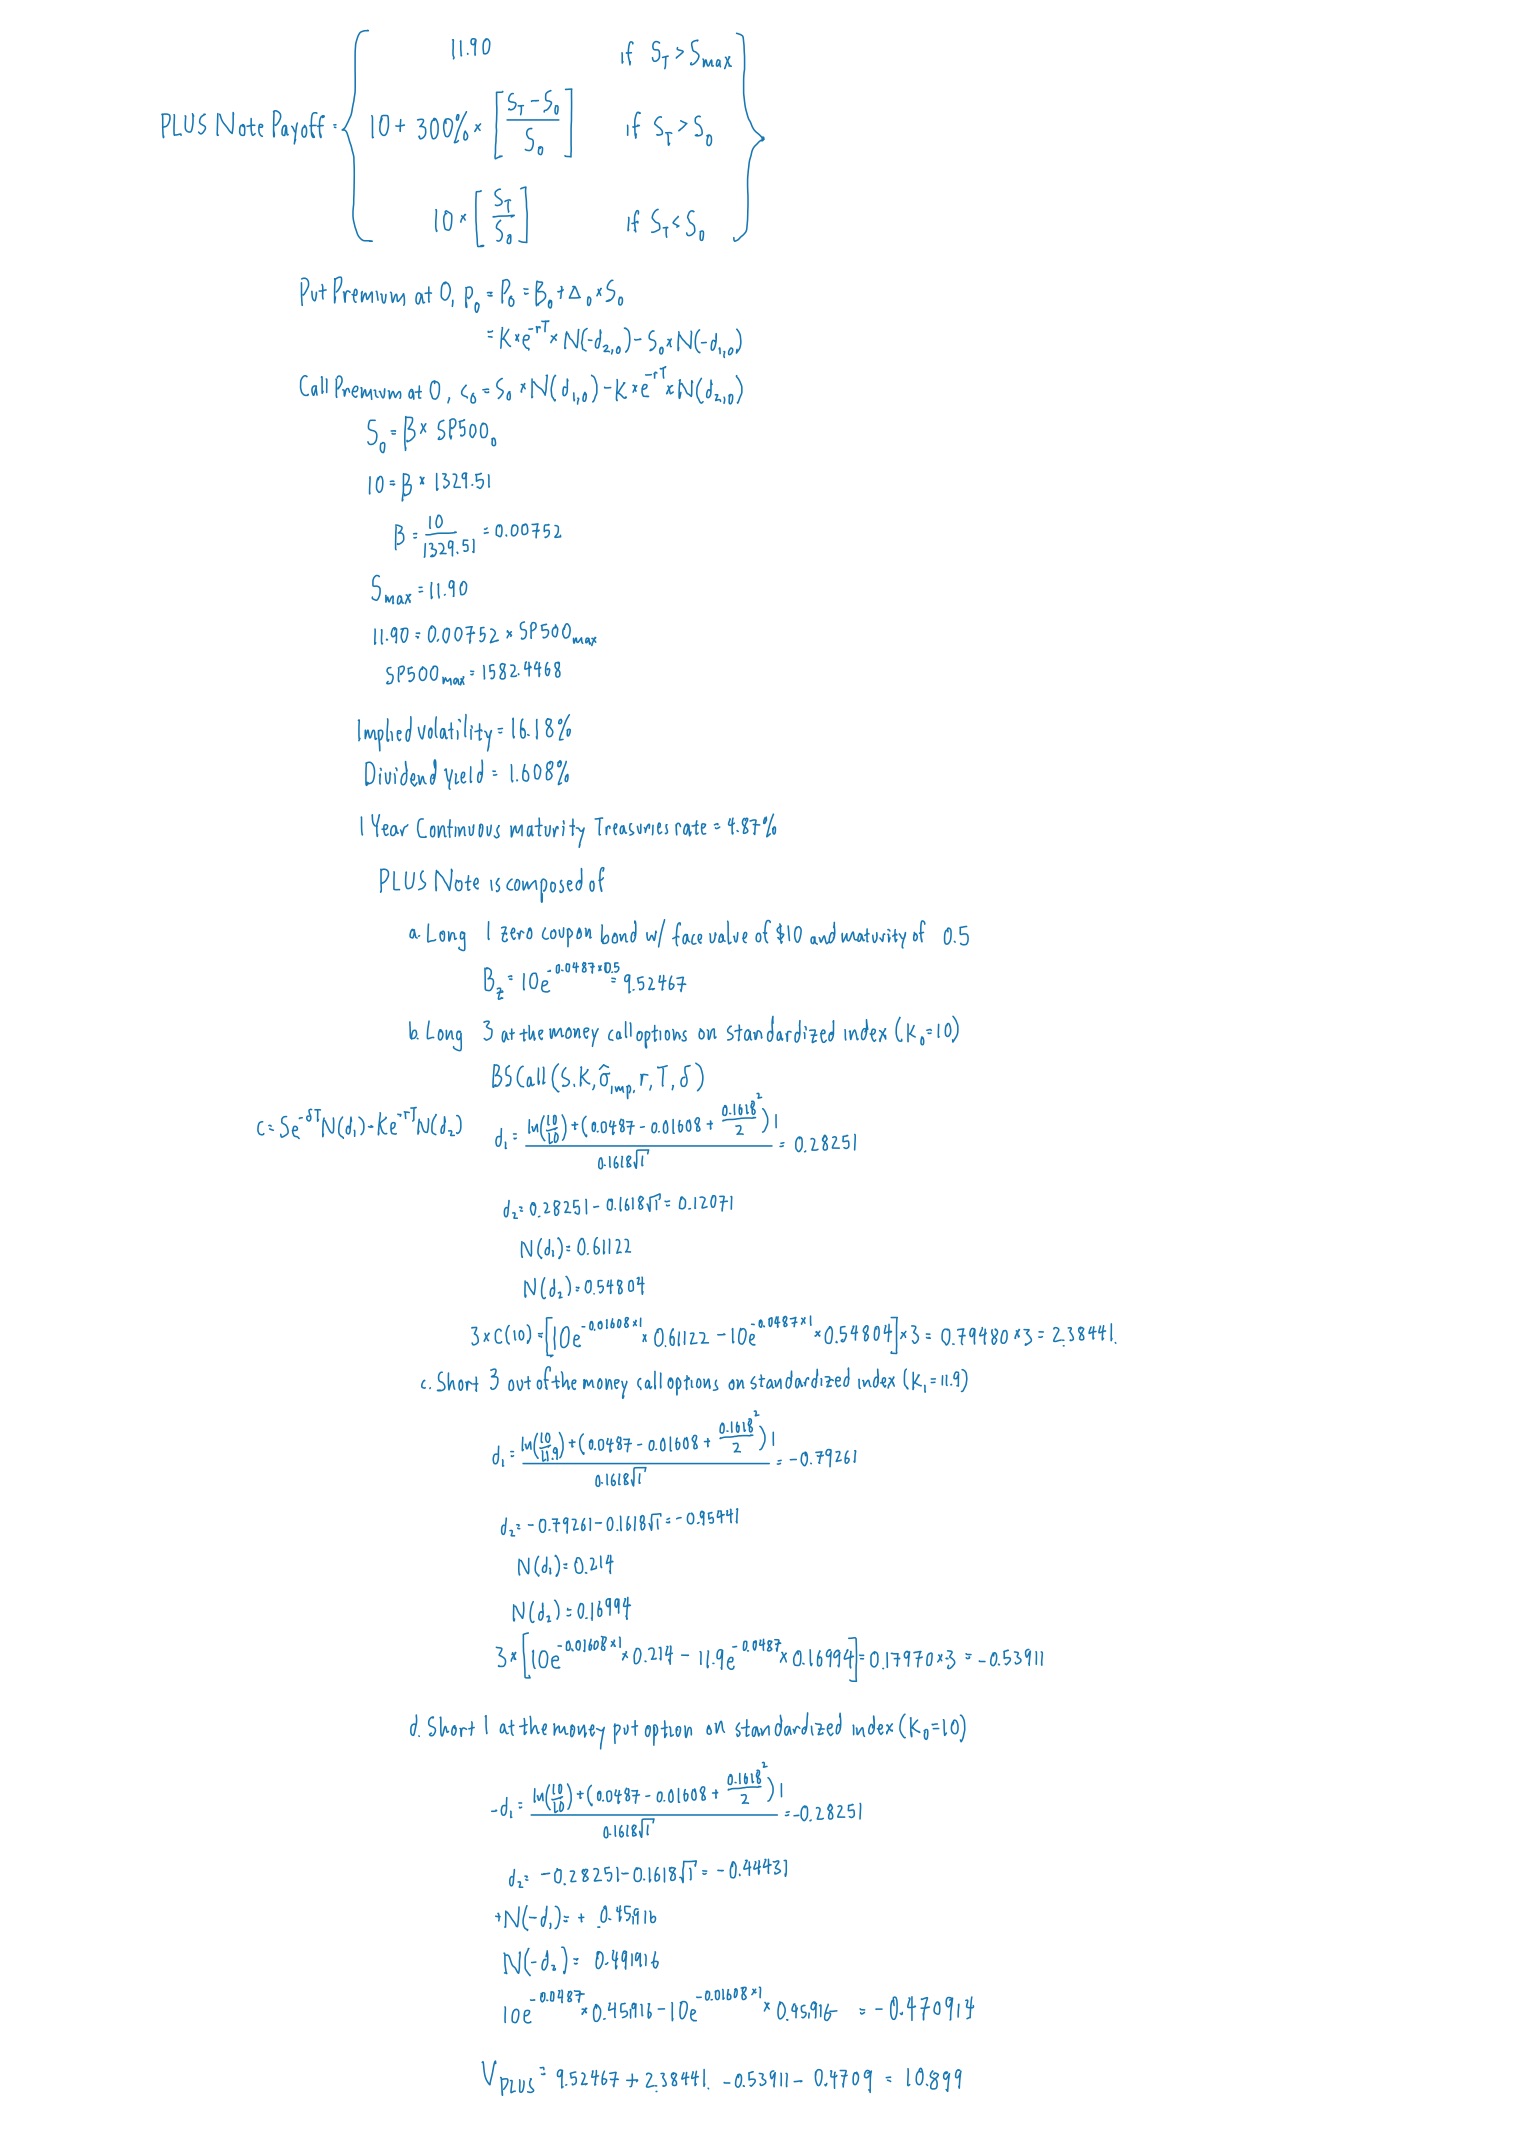 11.90 if S_T > S_max
PLUS Note Payoff = { 10 + 300% × [(S_T - S_0)/S_0] if S_T > S_0 }
10 × [S_T/S_0] if S_T < S_0
Put Premium at 0, p_0 = P_0 = B_0 + Δ_0 × S_0
= K × e^{-rT} × N(-d_{2,0}) - S_0 × N(-d_{1,0})
Call Premium at 0, c_0 = S_0 × N(d_{1,0}) - K × e^{-rT} × N(d_{2,0})
S_0 = β × SP500_0
10 = β × 1329.51
β = 10/1329.51 = 0.00752
S_max = 11.90
11.90 = 0.00752 × SP500_max
SP500_max = 1582.4468
Implied volatility = 16.18%
Dividend yield = 1.608%
1 Year Continuous maturity Treasuries rate = 4.87%
PLUS Note is composed of
a. Long 1 zero coupon bond w/ face value of $10 and maturity of 0.5
B_z = 10e^{-0.0487×0.5} = 9.52467
b. Long 3 at the money call options on standardized index (K_0=10)
BSCall(S,K,σ̂_imp,r,T,δ)
c = Se^{-δT}N(d_1) - Ke^{-rT}N(d_2)
d_1 = (ln(10/10) + (0.0487 - 0.01608 + 0.1618^2/2)1)/(0.1618√1) = 0.28251
d_2 = 0.28251 - 0.1618√1 = 0.12071
N(d_1) = 0.61122
N(d_2) = 0.54804
3×C(10) = [10e^{-0.01608×1} × 0.61122 - 10e^{-0.0487×1} × 0.54804] × 3 = 0.79480 × 3 = 2.38441.
c. Short 3 out of the money call options on standardized index (K_1 = 11.9)
d_1 = (ln(10/11.9) + (0.0487 - 0.01608 + 0.1618^2/2)1)/(0.1618√1) = -0.79261
d_2 = -0.79261 - 0.1618√1 = -0.95441
N(d_1) = 0.214
N(d_2) = 0.16994
3×[10e^{-0.01608×1} × 0.214 - 11.9e^{-0.0487} × 0.16994] = 0.17970 × 3 = -0.53911
d. Short 1 at the money put option on standardized index (K_0=10)
-d_1 = (ln(10/10) + (0.0487 - 0.01608 + 0.1618^2/2)1)/(0.1618√1) = -0.28251
d_2 = -0.28251 - 0.1618√1 = -0.44431
+N(-d_1) = +
N(-d_2) =
10e^{-0.0487} × - 10e^{-0.01608×1} × = -0.470914
V_PLUS = 9.52467 + 2.38441. - 0.53911 - 0.4709 = 10.899